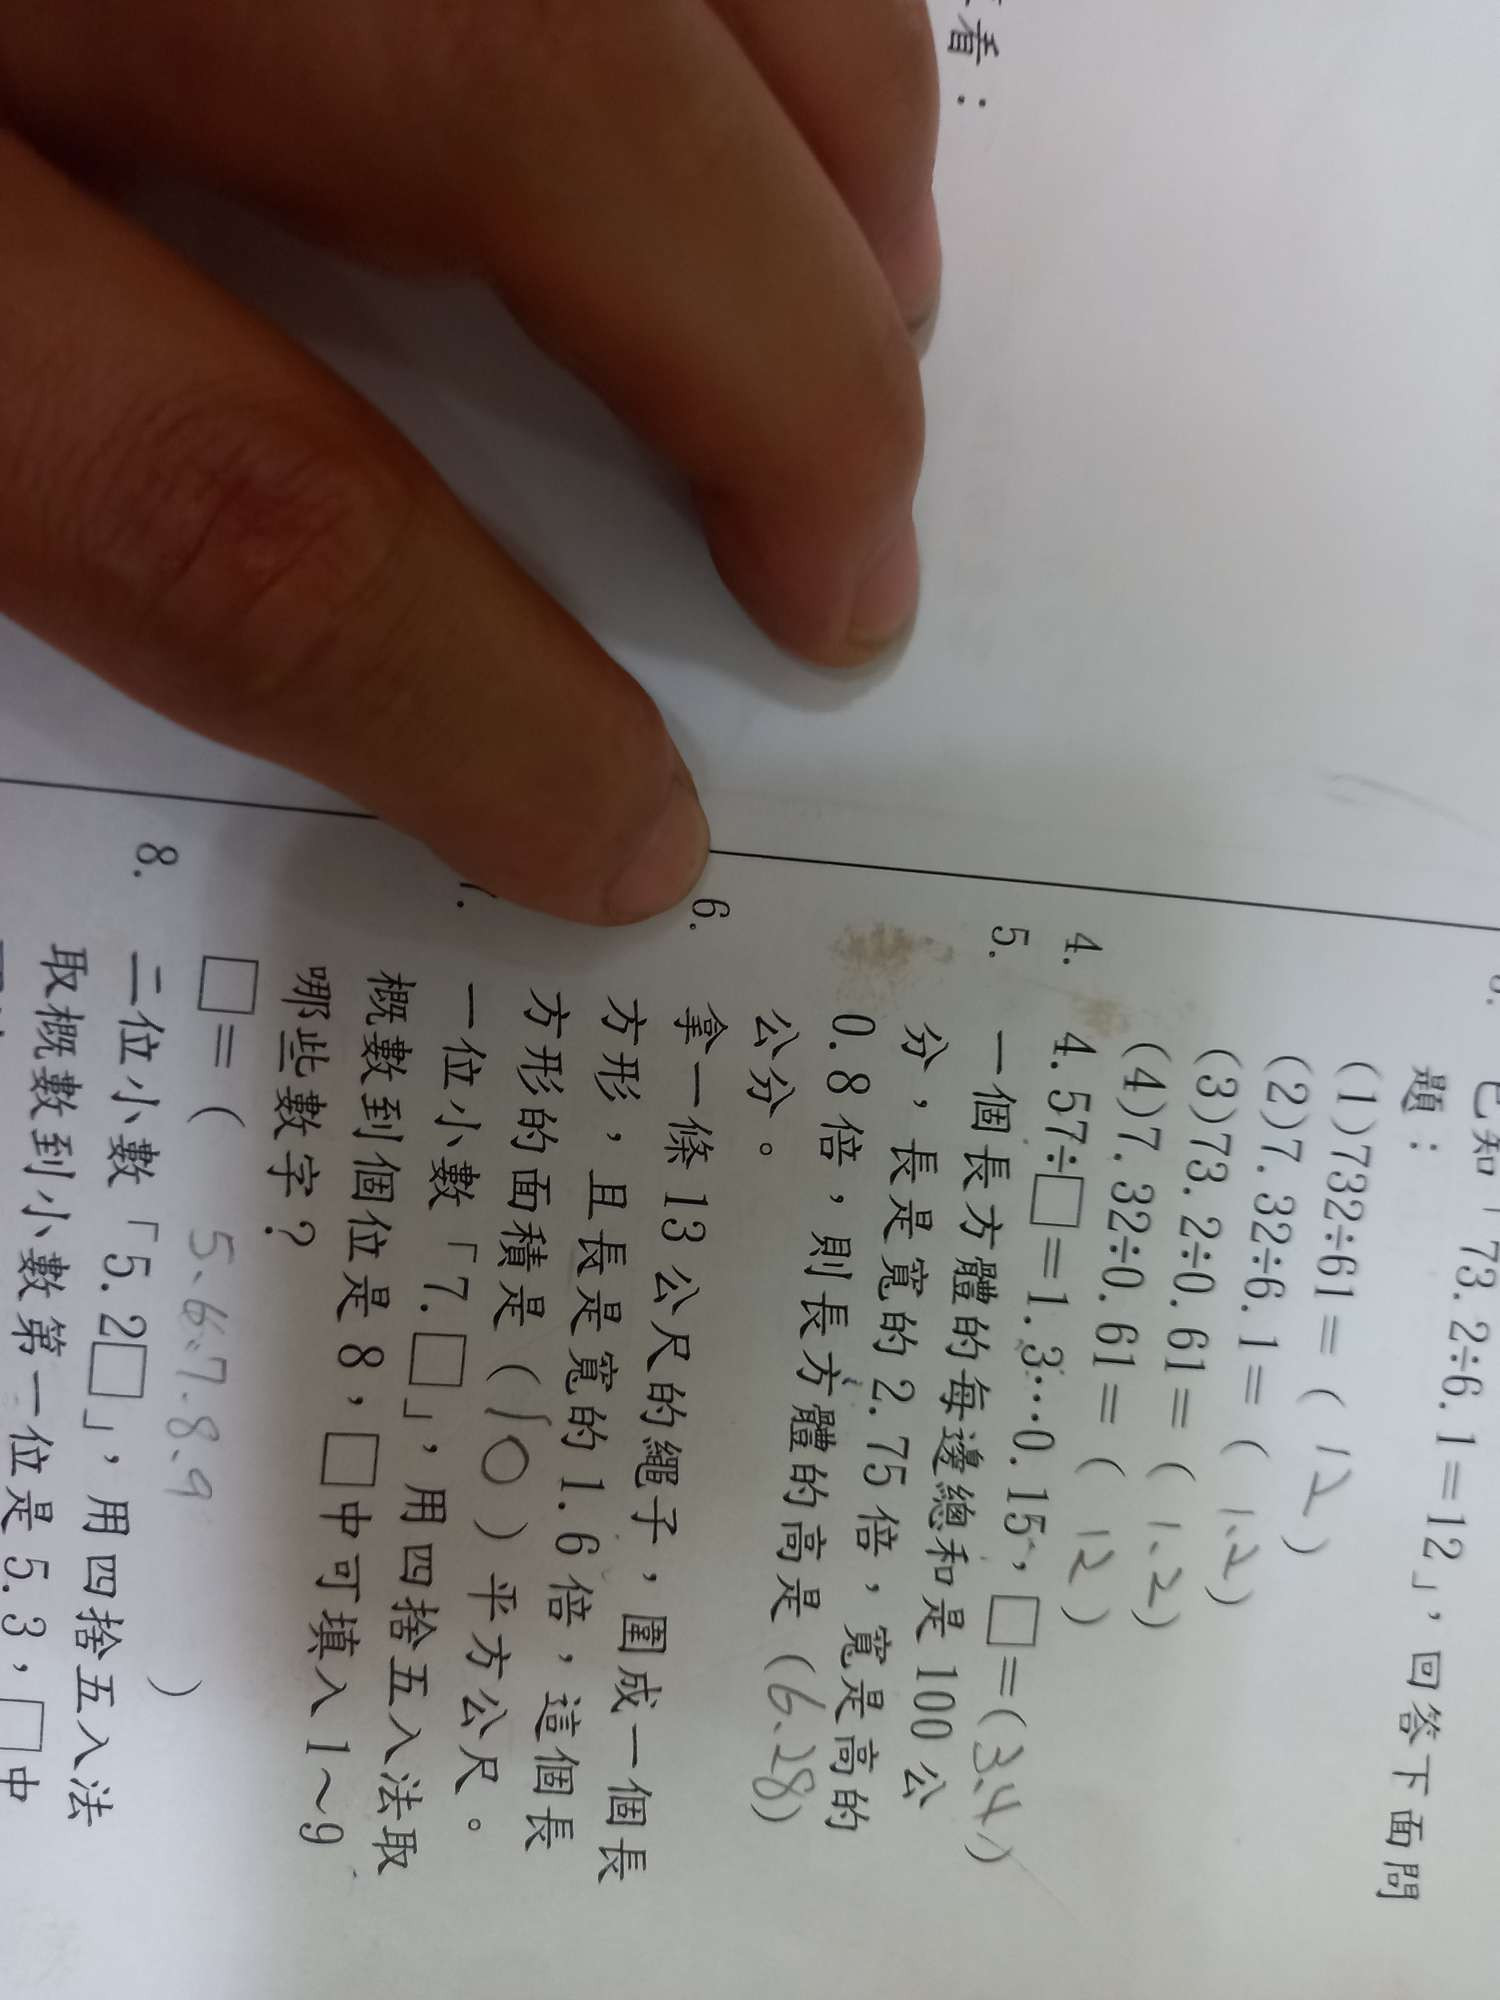 看：
已知「73.2÷6.1＝12」，回答下面問
題：
(1)732÷61＝( 12 )
(2)7.32÷6.1＝( 1.2 )
(3)73.2÷0.61＝( 1.2 )
(4)7.32÷0.61＝( 12 )
4. 4.57÷□＝1.3…0.15，□＝(3.4)
5. 一個長方體的每邊總和是100公
分，長是寬的2.75倍，寬是高的
0.8倍，則長方體的高是(6.28)
公分。
6. 拿一條13公尺的繩子，圍成一個長
方形，且長是寬的1.6倍，這個長
方形的面積是(10)平方公尺。
一位小數「7.□」，用四捨五入法取
概數到個位是8，□中可填入1～9
哪些數字？
□＝( 5、6、7、8、9 )
8. 二位小數「5.2□」，用四捨五入法
取概數到小數第一位是5.3，□中